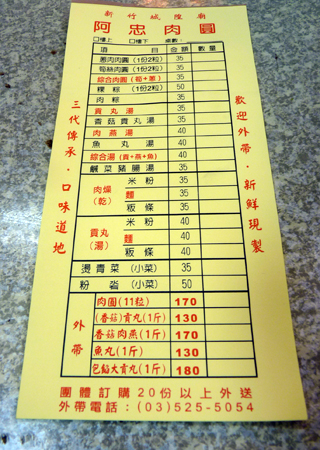 新竹城隍廟
阿忠肉圓
口樓上 口樓下 桌數:
項目 金額 數量
蔥肉肉圓(1份2粒) 35
筍絲肉圓(1份2粒) 35
綜合肉圓(筍+蔥) 35
粿粽(1份2粒) 50
肉粽 35
貢丸湯 35
香菇貢丸湯 35
肉燕湯 40
魚丸湯 40
綜合湯(貢+燕+魚) 40
鹹菜豬腸湯 35
肉燥(乾) 米粉 35
麵 35
粄條 35
貢丸(湯) 米粉 40
麵 40
粄條 40
燙青菜(小菜) 35
粉　(小菜) 50
外帶
肉圓(11粒) 170
(香菇)貢丸(1斤) 130
香菇肉燕(1斤) 170
魚丸(1斤) 130
包餡大貢丸(1斤) 180
三代傳承·口味道地
歡迎外帶·新鮮現製
團體訂購20份以上外送
外帶電話:(03)525-5054